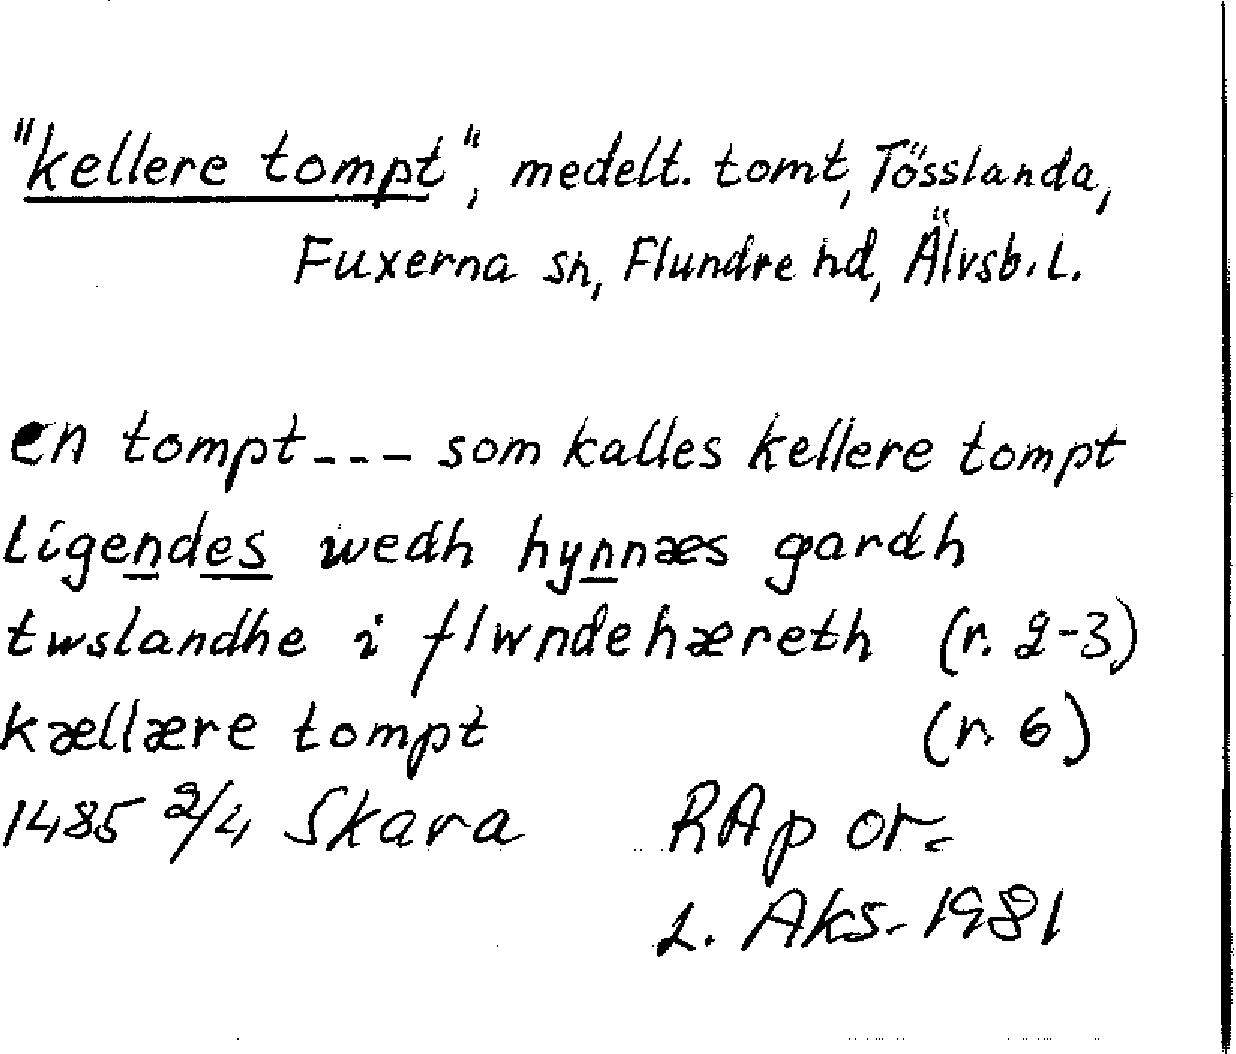 "kellere tompt", medelt. tomt, Tösslanda,
Fuxerna sn, Flundre hd, Älvsb. l.
en tompt --- som kalles kellere tompt
ligendes wedh hynnæs gardh
twslandhe i flwndehæreth (r. 2-3)
kællære tompt (r. 6)
1485 2/4 Skara RAp or.
L. Aks. 1981